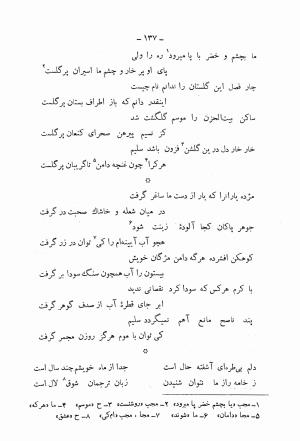 - ۱۳۷ -
ما بچشم و خضر با پا میرود ۱ ره را ولی
پای او پر خار و چشم ما اسیران پر گلست ۲
چار فصل این گلستان را ندانم نام چیست
اینقدر دانم که باز اطراف بستان پر گلست
ساکن بیت‌الحزن را موسم گلگشت شد
کز نسیم پیرهن صحرای کنعان پر گلست
خار خار دل درین گلشن ۳ فزون باشد سلیم
هر کرا ۴ چون غنچه دامن ۵ تا گریبان پر گلست
*
مژده یاران را که یار از دست ما ساغر گرفت
در میان شعله و خاشاک صحبت در گرفت
جوهر پاکان کجا آلودهٔ زینت شود ۶
همچو آب آیینه‌ام را کی ۷ توان در زر گرفت
کوهکن افشرده هر گه دامن مژگان خویش
بیستون را آب همچون سنگ سودا بر گرفت
با کرم هرکس که سودا کرد نقصانی ندید
ابر جای قطرهٔ آب از صدف گوهر گرفت
پند ناصح مانع آهم نمیگردد سلیم
کی توان با موم هرگز روزن مجمر گرفت
*
دلم بی‌طره‌ای آشفته حال است
جدا از ماه خویشم چند سال است
ز خامه راز ما نتوان شنیدن
زبان ترجمان شوق ۸ لال است
۱- مجب «با بچشم خضر پا میرود» ۲- مجب «روشنست» ۳- ح «موسم» ۴- ما «هر که»
۵- مجا «دامان» ۶- ما «شوند» ۷- مجا ، مجب «ام کی» ۸- ح «عشق»